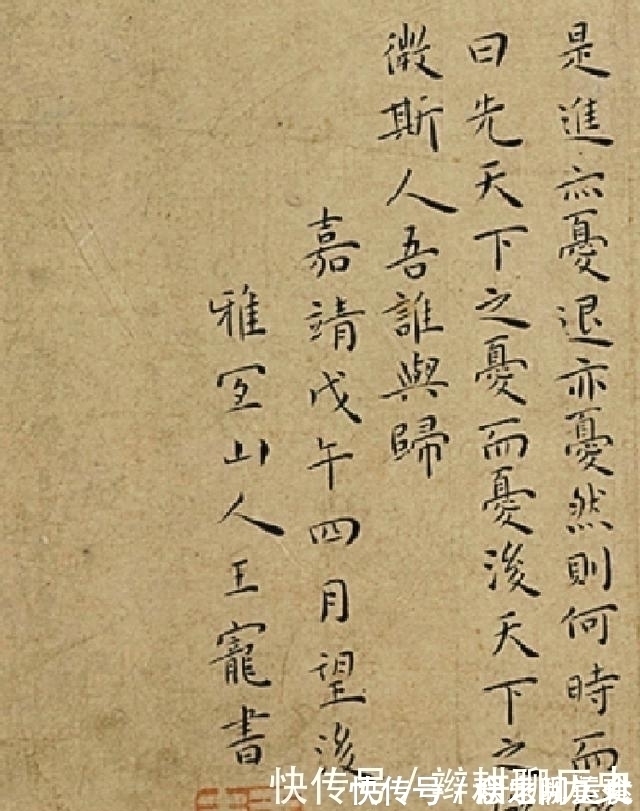 是進亦憂退亦憂然則何時而
曰先天下之憂而憂後天下之
微斯人吾誰與歸
嘉靖戊午四月望後
雅宜山人王寵書
快传号/辫耕聊历史
快传号/